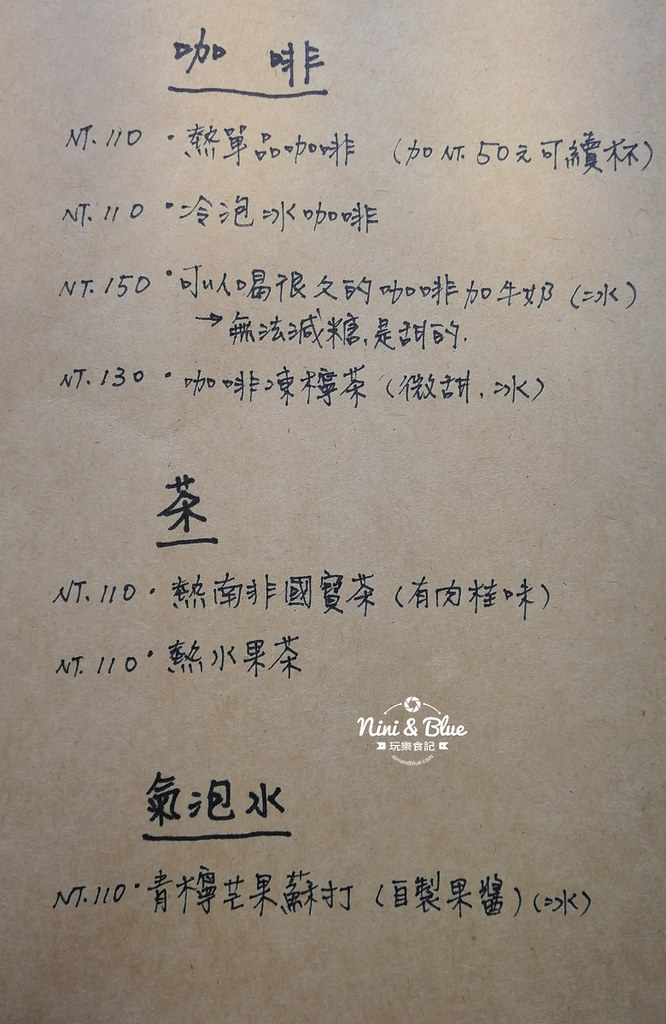 咖啡
NT.110 · 熱單品咖啡 (加NT.50元可續杯)
NT.110 · 冷泡冰咖啡
NT.150 · 可以喝很久的咖啡加牛奶 (冰)
→ 無法減糖,是甜的.
NT.130 · 咖啡凍檸茶 (微甜,冰)
茶
NT.110 · 熱南非國寶茶 (有肉桂味)
NT.110 · 熱水果茶
Nini & Blue
玩樂食記
niniandblue.com
氣泡水
NT.110 · 青檸芒果蘇打 (自製果醬) (冰)